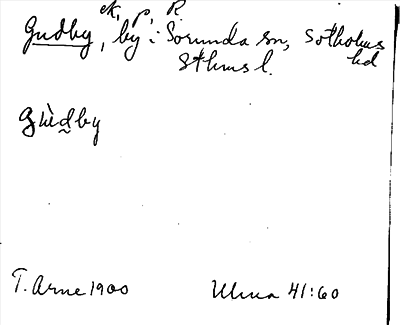 ek, p, R.
Gudby, by i Sorunda sn, Sotholms
hd
Sthms l.
gùd̰by
T. Arne 1900
Ulma 41:60